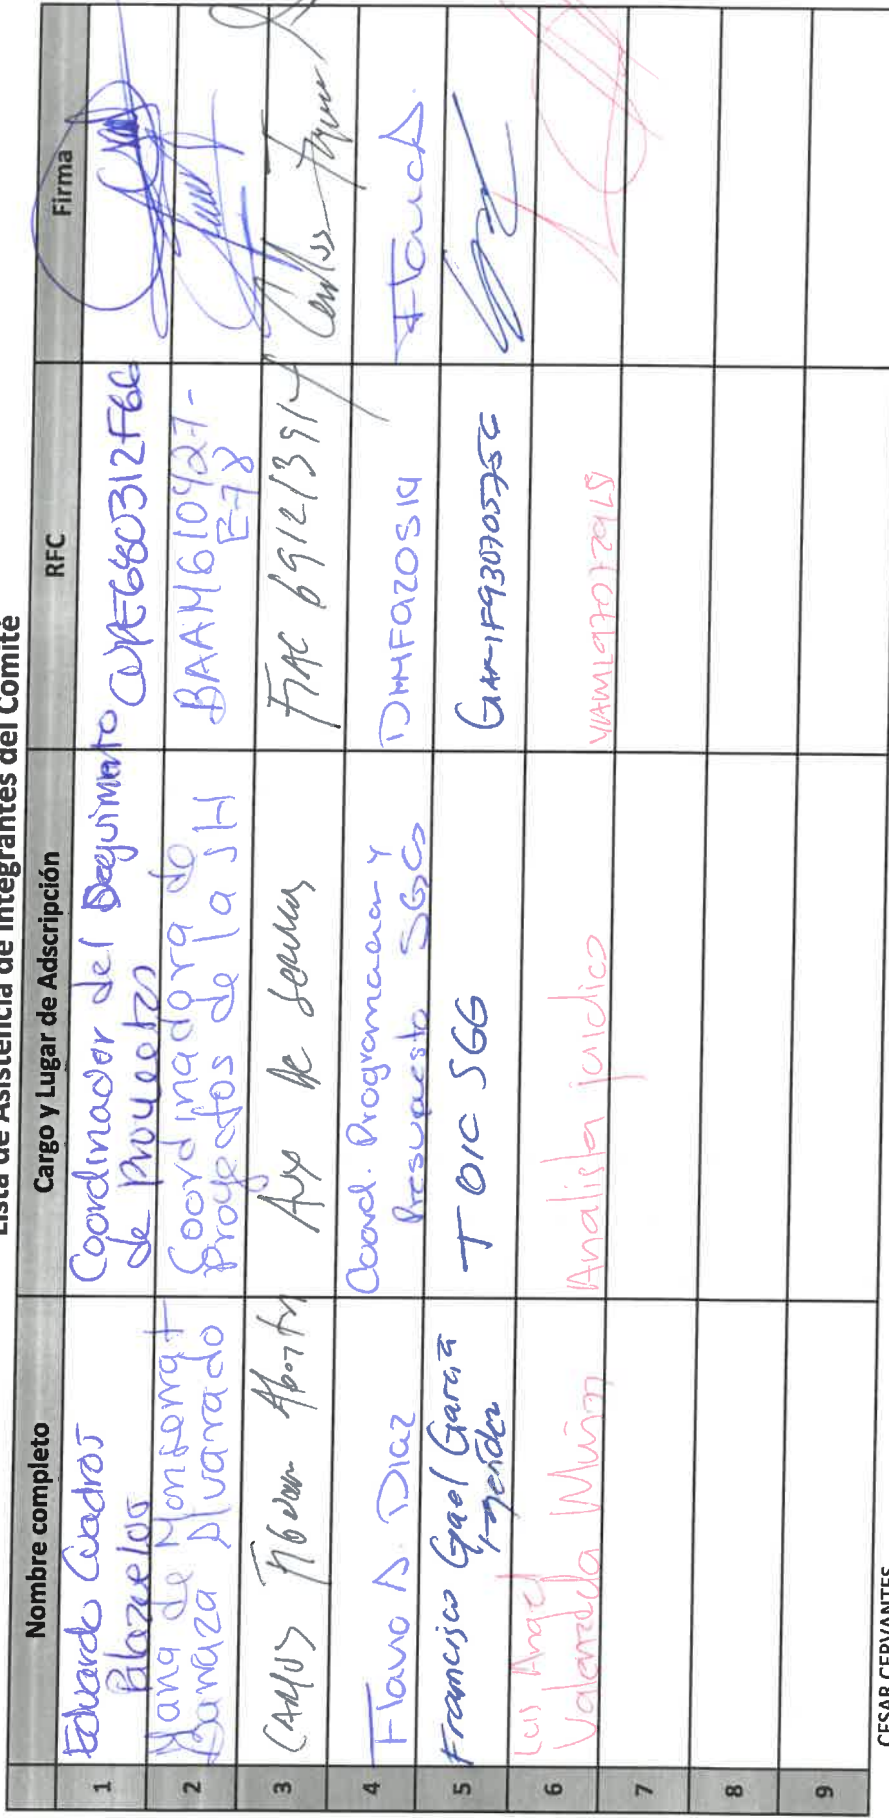 Lista de Asistencia de Integrantes del Comité
Nombre completo Cargo y Lugar de Adscripción RFC Firma
1 Eduardo Cuadros Palazuelos Coordinador del Seguimiento de Proyectos CUPE680312F66
2 María de Monserrat Barraza Alvarado Coordinadora de Proyectos de la SH BAAM610427-E78
3 Carlos Aux de
4 Flavio A. Diaz Coord. Programacion y Presupuesto SGG Flavio A.
5 Francisco Gael García TOIC SGG
6 Luis Angel Valenzuela Muñoz Analista jurídico
7
8
9
CESAR CERVANTES